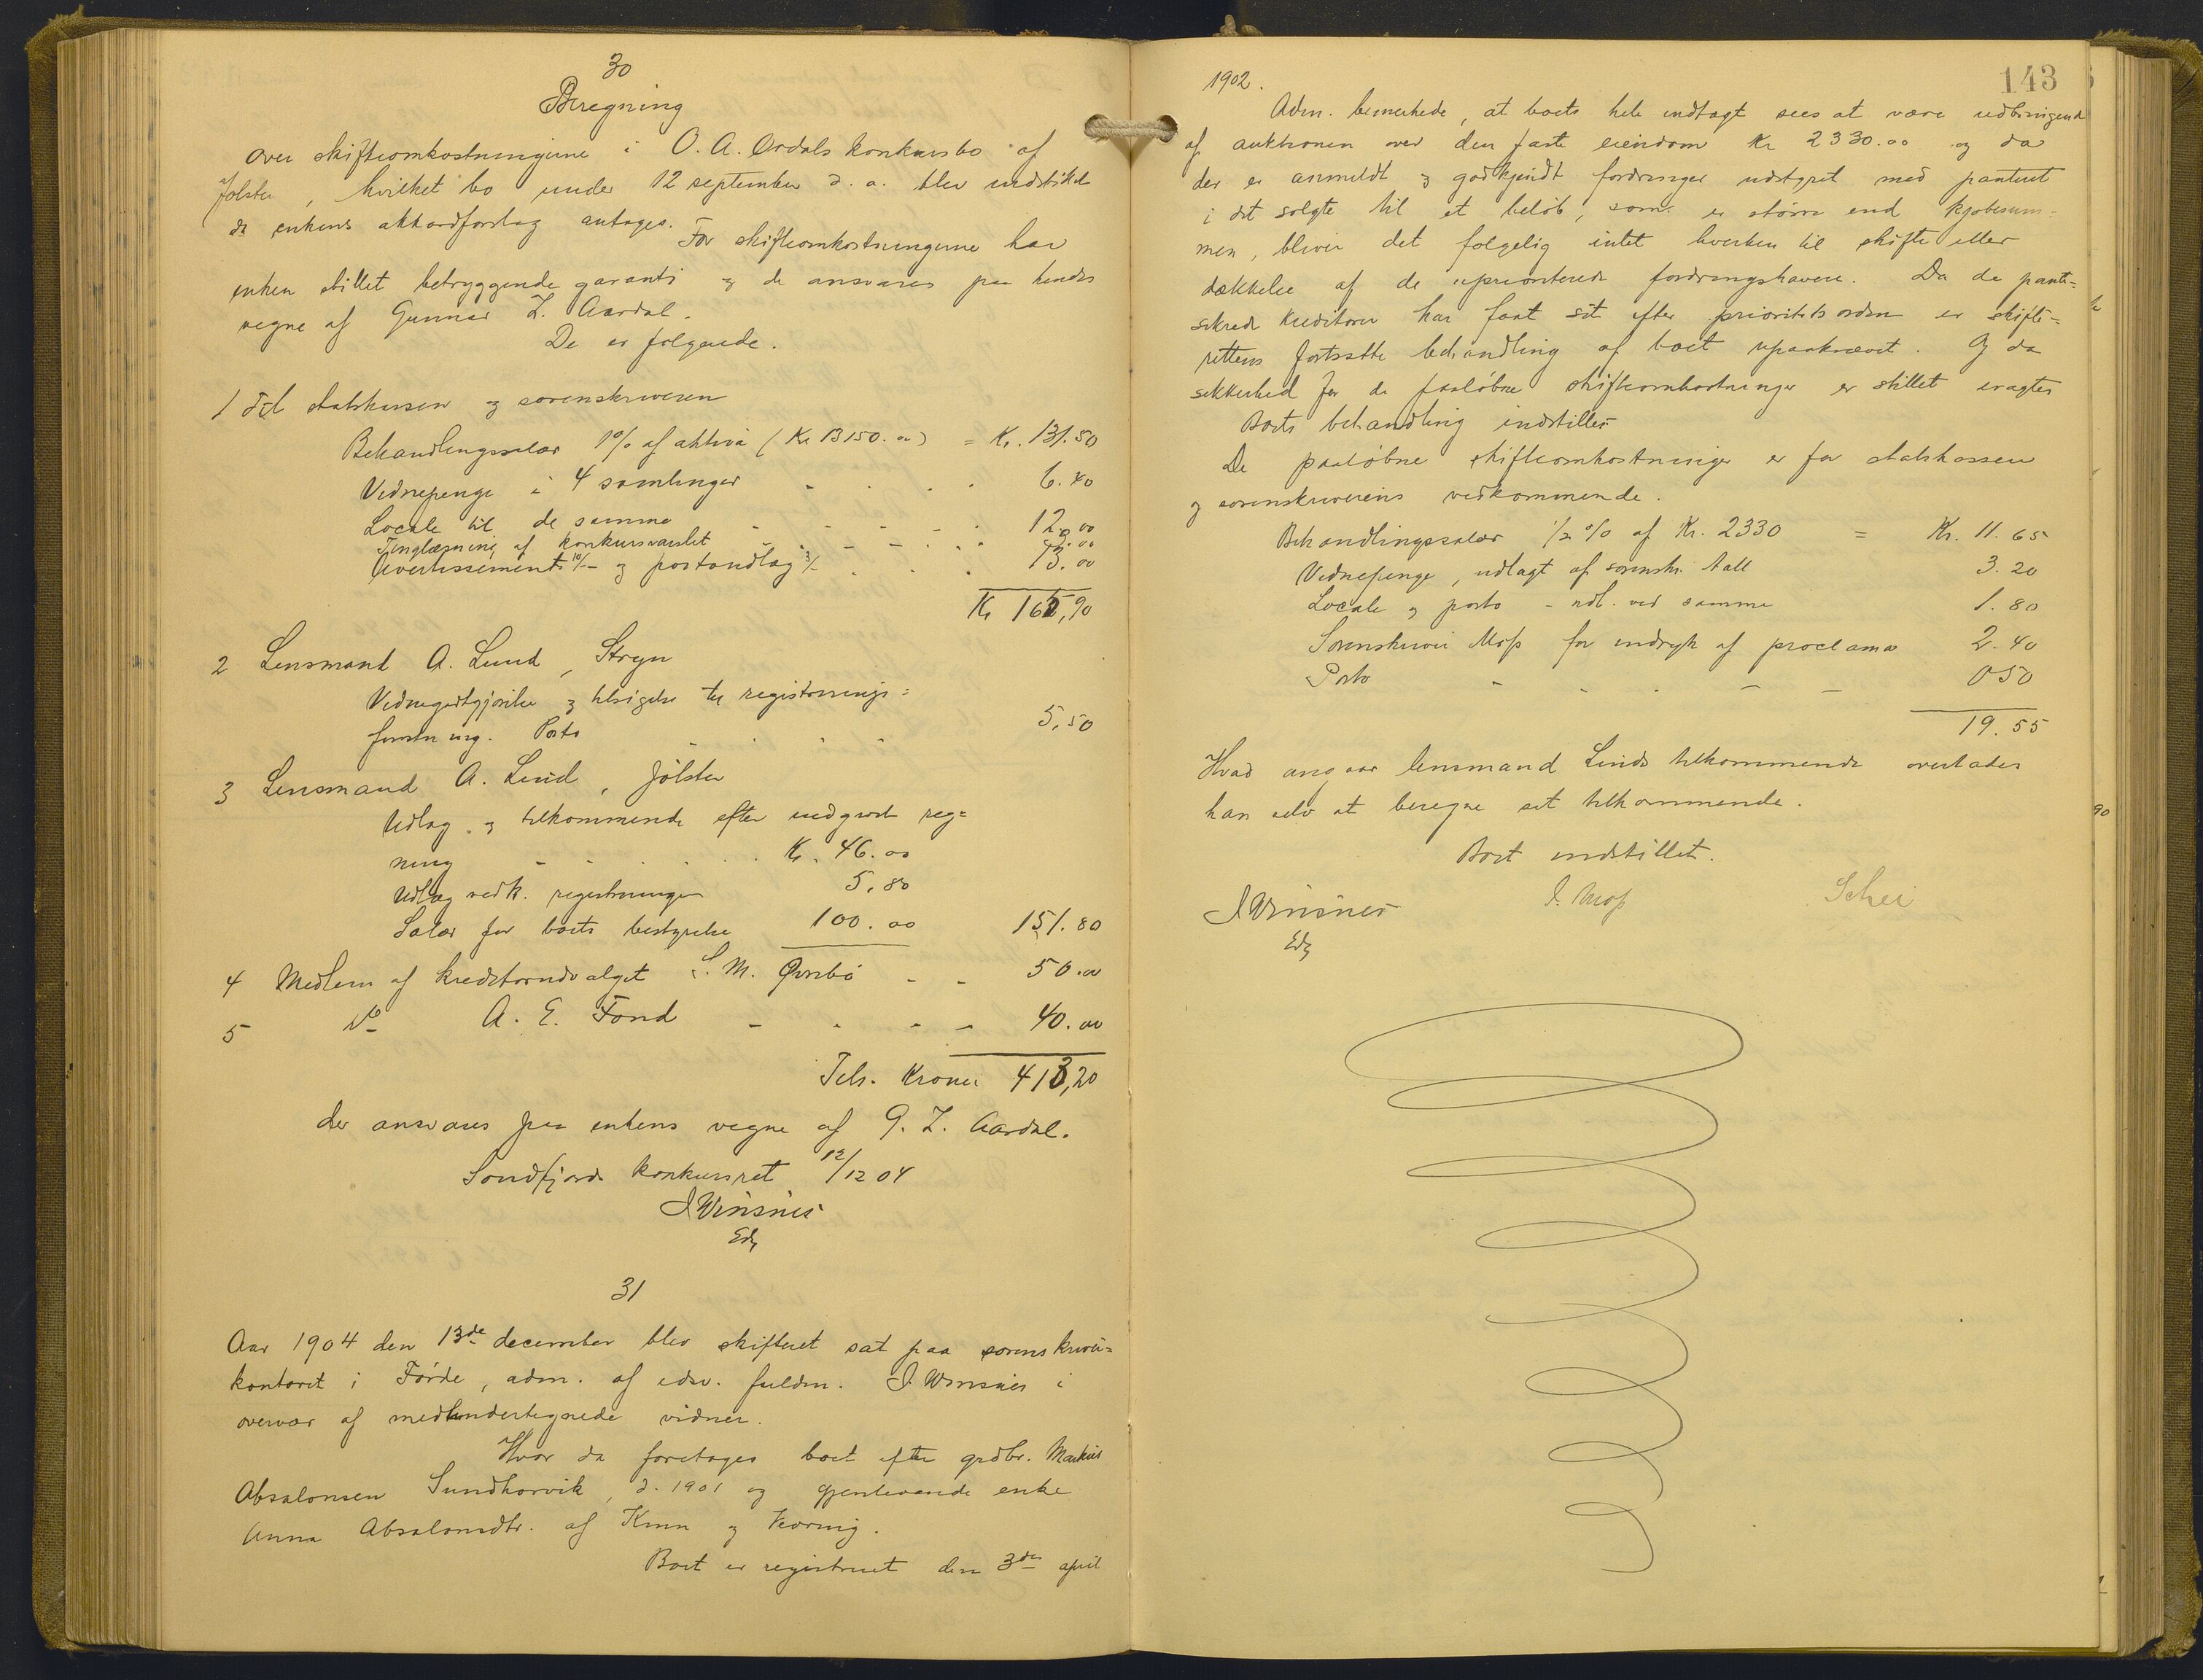 30
Beregning
over skifteomkostningerne i O. A. Ordals konkursbo af
Jølster, hvilket bo under 12 september d. a. blev indstillet
da enkens akkordforslag antages. For skifteomkostningerne har
enken stillet betryggende garanti og de ansvares paa hendes
vegne af Gunnar Z. Aardal.
De er følgende.
1 Til statskassen og sorenskriveren
Behandlingssalær 1% af aktiva (Kr 13150.00) = Kr. 131.50
Vidnepenge i 4 samlinger 6.40
Locale til de samme 12.00
Tinglæsning af konkursvarslet
Avertissement 10/- og postandlag 3/- 13.00
Kr 165,90
2 Lensmand A. Lund, Stryn
Vidnegodtgjørelse og tilsigelse til registrerings=
forretning. Porto 5,50
3 Lensmand A. Lind, Jølster
Udlæg og tilkommende efter indgivet reg=
ning Kr. 46.00
Udlæg vedk. registreringen 5,80
Salær for boets bestyrelse 100.00 151.80
4 Medlem af kreditorudvalget S. M. Øvrebø 50.00
5 Do A. E. Fond 40.00
Tils. Kroner 413,20
der ansvares paa enkens vegne af G. Z. Aardal.
Søndfjords konkursret 12/12 04
J Winsnes
Eds
31
Aar 1904 den 13de december blev skifteret sat paa sorenskriver=
kontoret i Førde, adm. af edsv. fuldm. J. Winsnes i
overvær af medundertegnede vidner.
Hvor da foretoges boet efter grdbr. Markus
Absalonsen Sundhorvik, d. 1901 og gjenlevende enke
Anna Absalonsdtr. af Kinn og Hornig.
Boet er registreret den 3die april
143
1902.
Adm. bemerkede, at boets hele indtægt sees at være udbringende
af auktionen over den faste eiendom Kr 2330.00 og da
der er anmeldt og godkjendt fordringer udstyret med panteret
i det solgte til et beløb, som er større end kjøbesum=
men, bliver det følgelig intet hverken til skifte eller
dækkelse af de upriorterede fordringshavere. Da de pante=
sikrede kreditorer har faat sit efter prioritetsorden er skifte=
rettens fortsatte behandling af boet upaakrævet. Og da
sikkerhed for de paaløbne skifteomkostninger er stillet eragtes
Boets behandling indstilles
De paaløbne skifteomkostninger er for statskassen
og sorenskriverens vedkommende.
Behandlingssalær 1/2 % af Kr. 2330 = Kr. 11.65
Vidnepenge, udlagt af sorenskr. Aall 3.20
Locale og porto - udl. ved samme 1.80
Sorenskriver Moss for indryk af proclama 2.40
Porto 0 50
19.55
Hvad angaar lensmand Linds tilkommende overlades
han selv at beregne sit tilkommende.
Boet indstillet.
J Winsnes J. Moss Schei
Eds
90